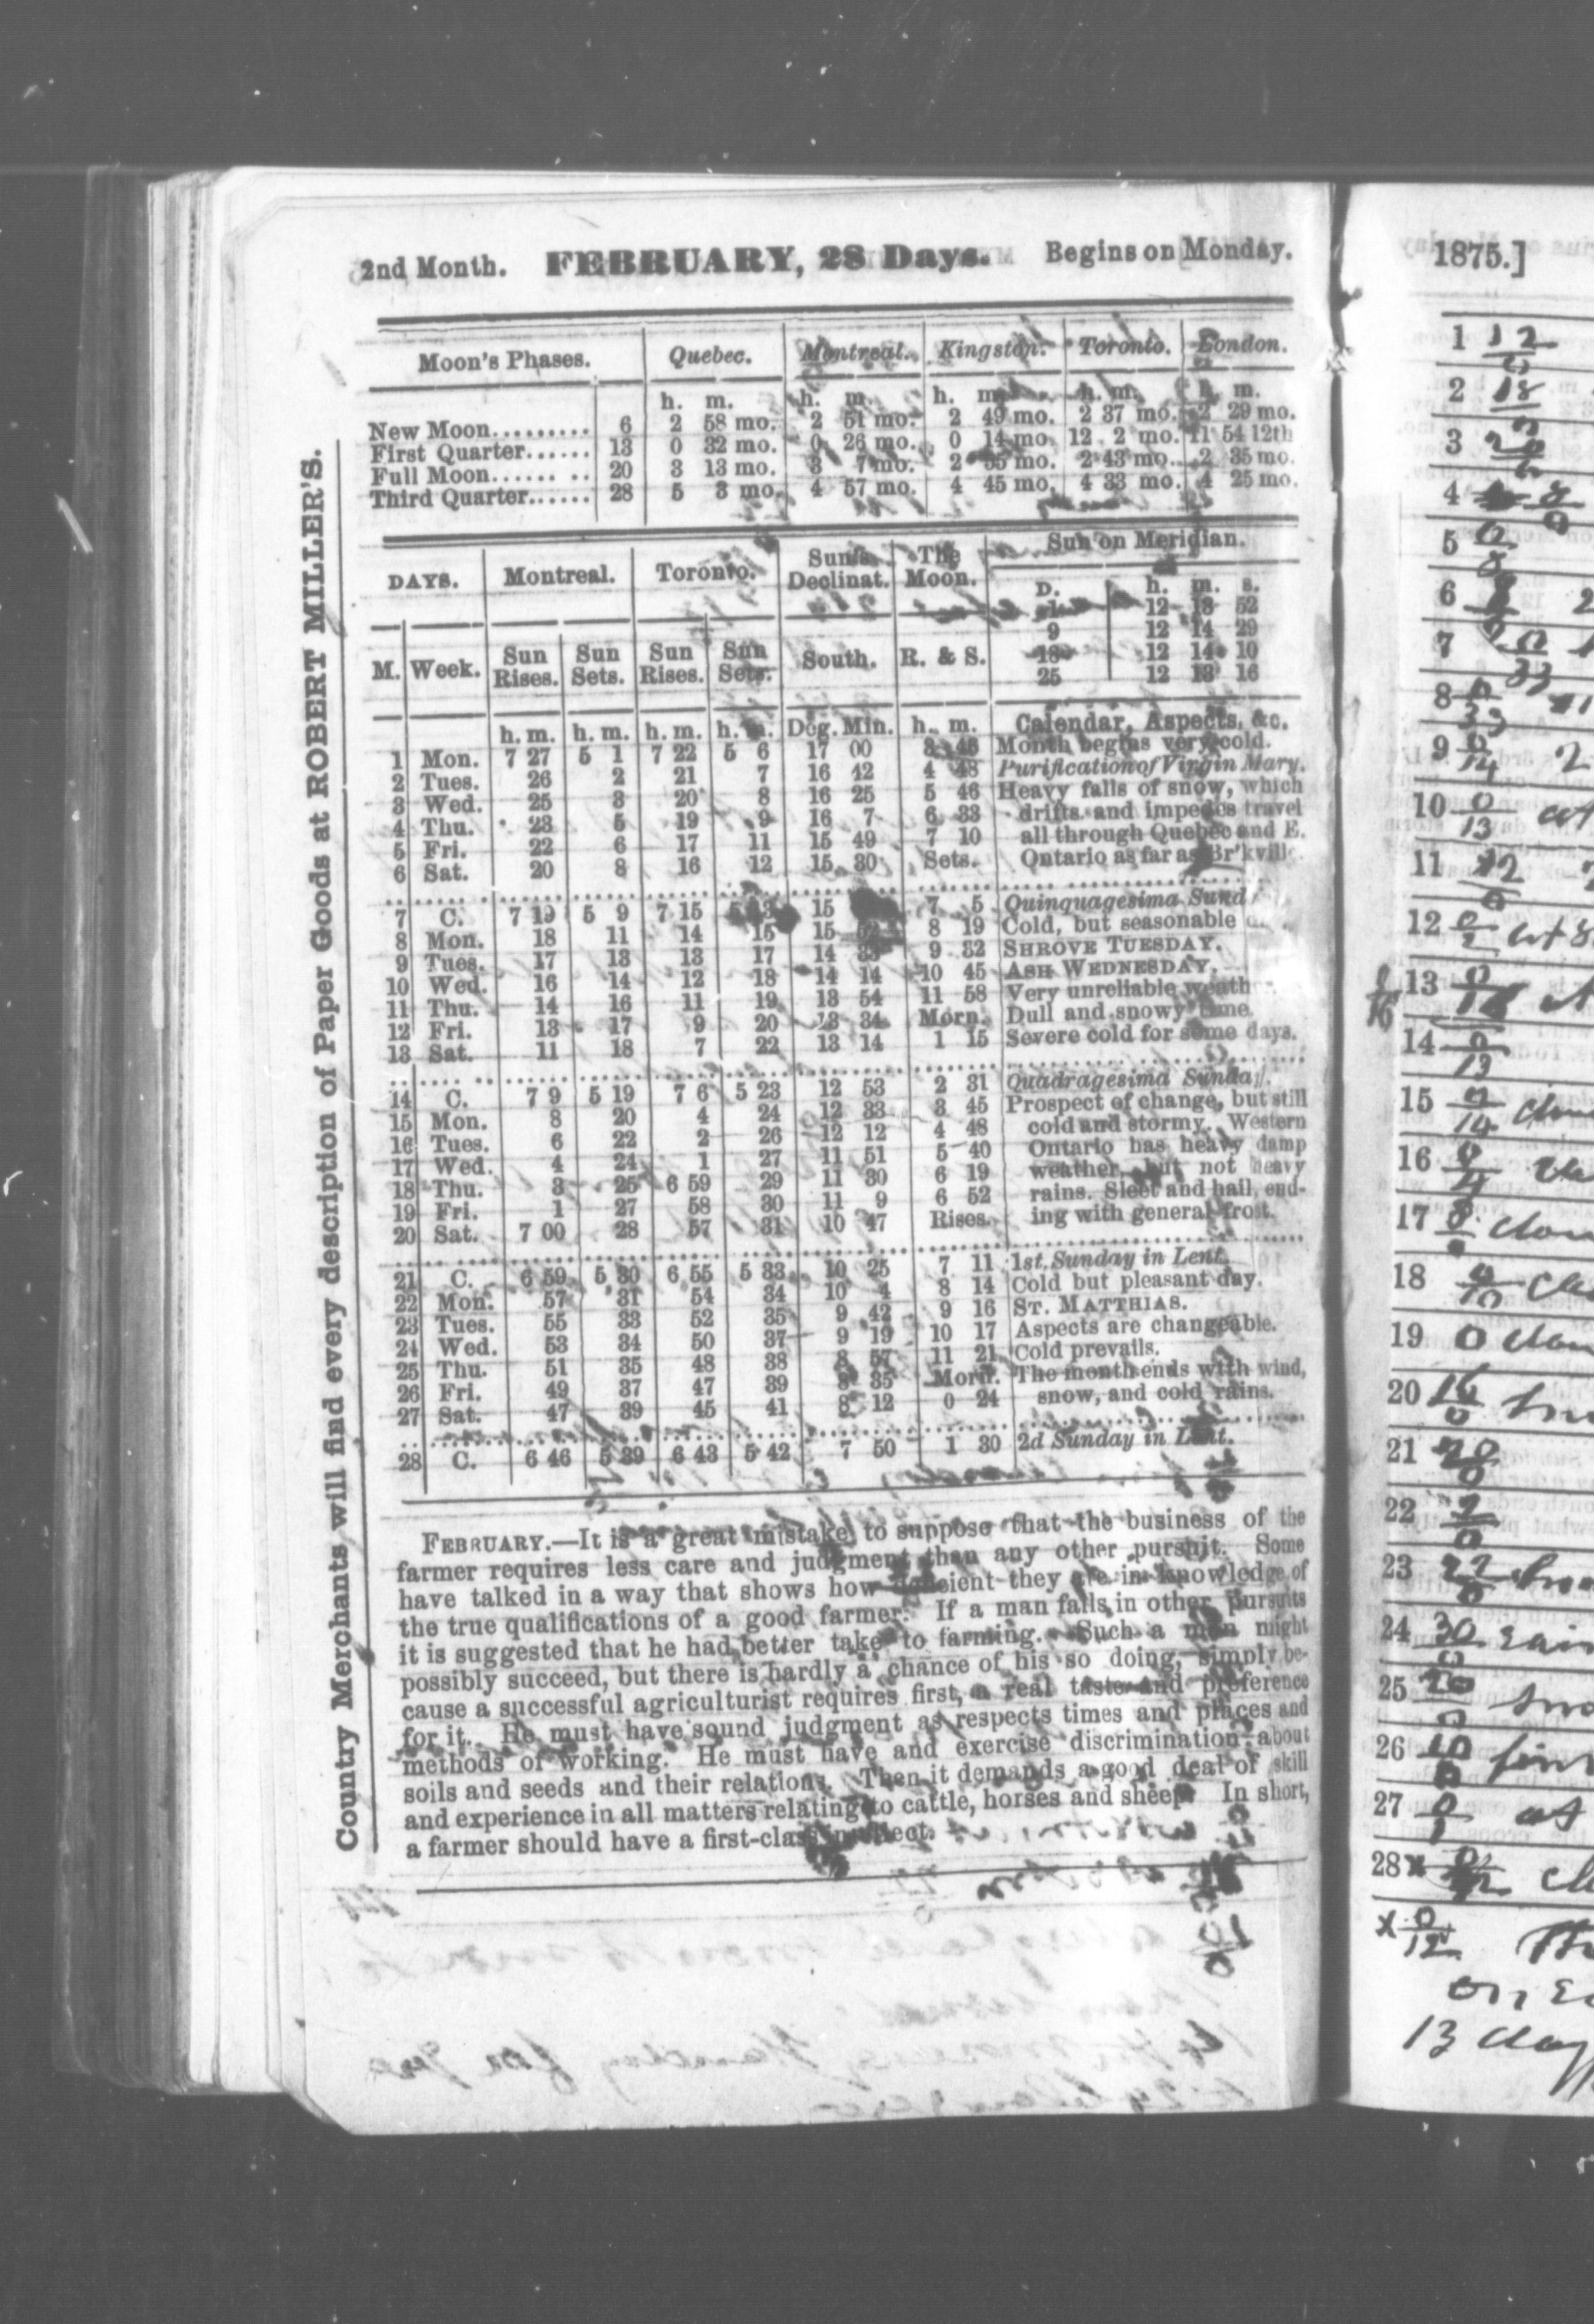 2nd Month. FEBRUARY, 28 Days. Begins on Monday.
Moon's Phases. Quebec. Montreal. Kingston. Toronto. London.
h. m. h. m. h. m. h. m. h. m.
New Moon......... 6 2 58 mo. 2 51 mo. 2 49 mo. 2 37 mo. 2 29 mo.
First Quarter...... 13 0 32 mo. 0 26 mo. 0 14 mo. 12 2 mo. 11 54 12th
Full Moon...... .. 20 3 13 mo. 3 7 mo. 2 55 mo. 2 43 mo. 2 35 mo.
Third Quarter...... 28 5 3 mo. 4 57 mo. 4 45 mo. 4 33 mo. 4 25 mo.
DAYS. Montreal. Toronto. Sun's Declinat. The Moon. Sun on Meridian.
D. h. m. s.
1 12 13 52
9 12 14 29
18 12 14 10
25 12 13 16
M. Week. Sun Rises. Sun Sets. Sun Rises. Sun Sets. South. R. & S.
h. m. h. m. h. m. h. m. Deg. Min. h. m. Calendar, Aspects, &c.
1 Mon. 7 27 5 1 7 22 5 6 17 00 3 46 Month begins very cold.
2 Tues. 26 2 21 7 16 42 4 48 Purification of Virgin Mary.
3 Wed. 25 3 20 8 16 25 5 46 Heavy falls of snow, which
4 Thu. 23 5 19 9 16 7 6 33 drifts and impedes travel
5 Fri. 22 6 17 11 15 49 7 10 all through Quebec and E.
6 Sat. 20 8 16 12 15 30 Sets. Ontario as far as Br'kville.
7 C. 7 19 5 9 7 15 5 13 15 7 5 Quinquagesima Sund
8 Mon. 18 11 14 15 15 52 8 19 Cold, but seasonable
9 Tues. 17 13 13 17 14 33 9 32 SHROVE TUESDAY.
10 Wed. 16 14 12 18 14 14 10 45 ASH WEDNESDAY.
11 Thu. 14 16 11 19 13 54 11 58 Very unreliable weath
12 Fri. 13 17 9 20 13 34 Morn. Dull and snowy time.
13 Sat. 11 18 7 22 13 14 1 15 Severe cold for some days.
14 C. 7 9 5 19 7 6 5 23 12 53 2 31 Quadragesima Sunday.
15 Mon. 8 20 4 24 12 33 3 45 Prospect of change, but still
16 Tues. 6 22 2 26 12 12 4 48 cold and stormy. Western
17 Wed. 4 24 1 27 11 51 5 40 Ontario has heavy damp
18 Thu. 3 25 6 59 29 11 30 6 19 weather, but not heavy
19 Fri. 1 27 58 30 11 9 6 52 rains. Sleet and hail, end-
20 Sat. 7 00 28 57 31 10 47 Rises. ing with general frost.
21 C. 6 59 5 30 6 55 5 33 10 25 7 11 1st. Sunday in Lent.
22 Mon. 57 31 54 34 10 4 8 14 Cold but pleasant day.
23 Tues. 55 33 52 35 9 42 9 16 ST. MATTHIAS.
24 Wed. 53 34 50 37 9 19 10 17 Aspects are changeable.
25 Thu. 51 35 48 38 8 57 11 21 Cold prevails.
26 Fri. 49 37 47 39 8 35 Morn. The month ends with wind,
27 Sat. 47 39 45 41 8 12 0 24 snow, and cold rains.
28 C. 6 46 5 39 6 43 5 42 7 50 1 30 2d Sunday in Lent.
FEBRUARY.—It is a great mistake to suppose that the business of the
farmer requires less care and judgment than any other pursuit. Some
have talked in a way that shows how deficient they are in knowledge of
the true qualifications of a good farmer. If a man falls in other pursuits
it is suggested that he had better take to farming. Such a man might
possibly succeed, but there is hardly a chance of his so doing, simply be-
cause a successful agriculturist requires first, a real taste and preference
for it. He must have sound judgment as respects times and places and
methods of working. He must have and exercise discrimination about
soils and seeds and their relations. Then it demands a good deal of skill
and experience in all matters relating to cattle, horses and sheep. In short,
a farmer should have a first-class intellect.
Country Merchants will find every description of Paper Goods at ROBERT MILLER'S.
1875.]
1 12/0
2 18
3
4
5
6
7
8
9 0/14 2
10 0/13 at
11 12/0
12
13
14 0/13
15 0/14
16 0/4
17
18 0/10
19 0
20 16/0
21 20/0
22
23 22/0
24 30/0
25 20/0
26 10/0
27 0/1 at
28 x
x 0/12
on
13 day